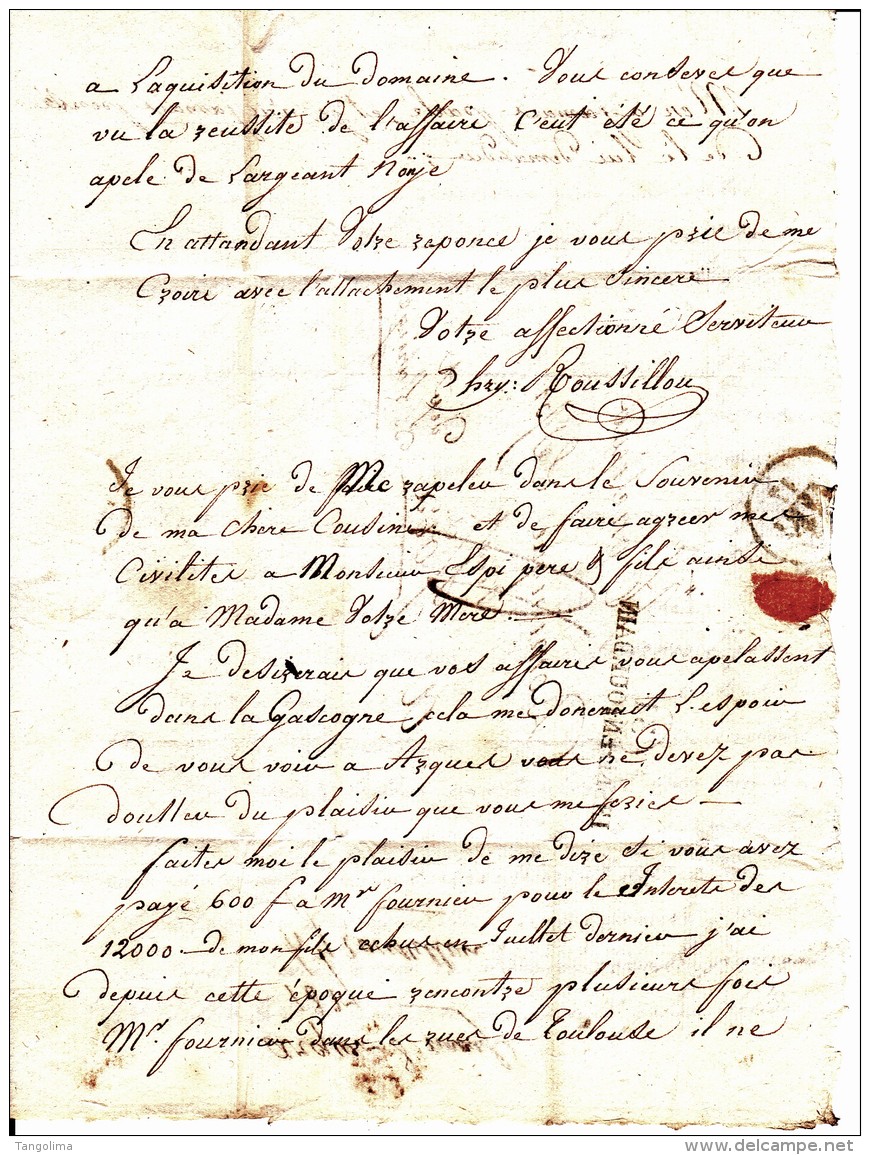 a Laquisition du domaine. Vous concevez que
vu la reussité de l'affaire C'eut été ce qu'on
apele de Largeant Noyé
En attandant Votre reponce je vous prie de me
Croire avec l'attachement le plus Sincere
Votre affectionné Serviteur
Chry: Roussillou
Je vous prie de Me rapeler dans le Souvenir
de ma chere Cousine et de faire agreer mes
Civilites a Monsieur Espi pere & fils ainsi
qu'a Madame Votre Mere
Je desirerais que vos affaires vous apelassent
dans la Gascogne cela me donerait L'espoir
de vous voir a Arques vous ne devez pas
doutter du plaisir que vous me feriez
faites moi le plaisir de me dire Si vous avez
payé 600 f a Mr fournier pour le Interets des
12000 de mon fils echus en Juillet dernier j'ai
depuis cette époque rencontre plusieurs fois
Mr. fournier dans les rues de Toulouse il ne
Tangolima
www.delcampe.net